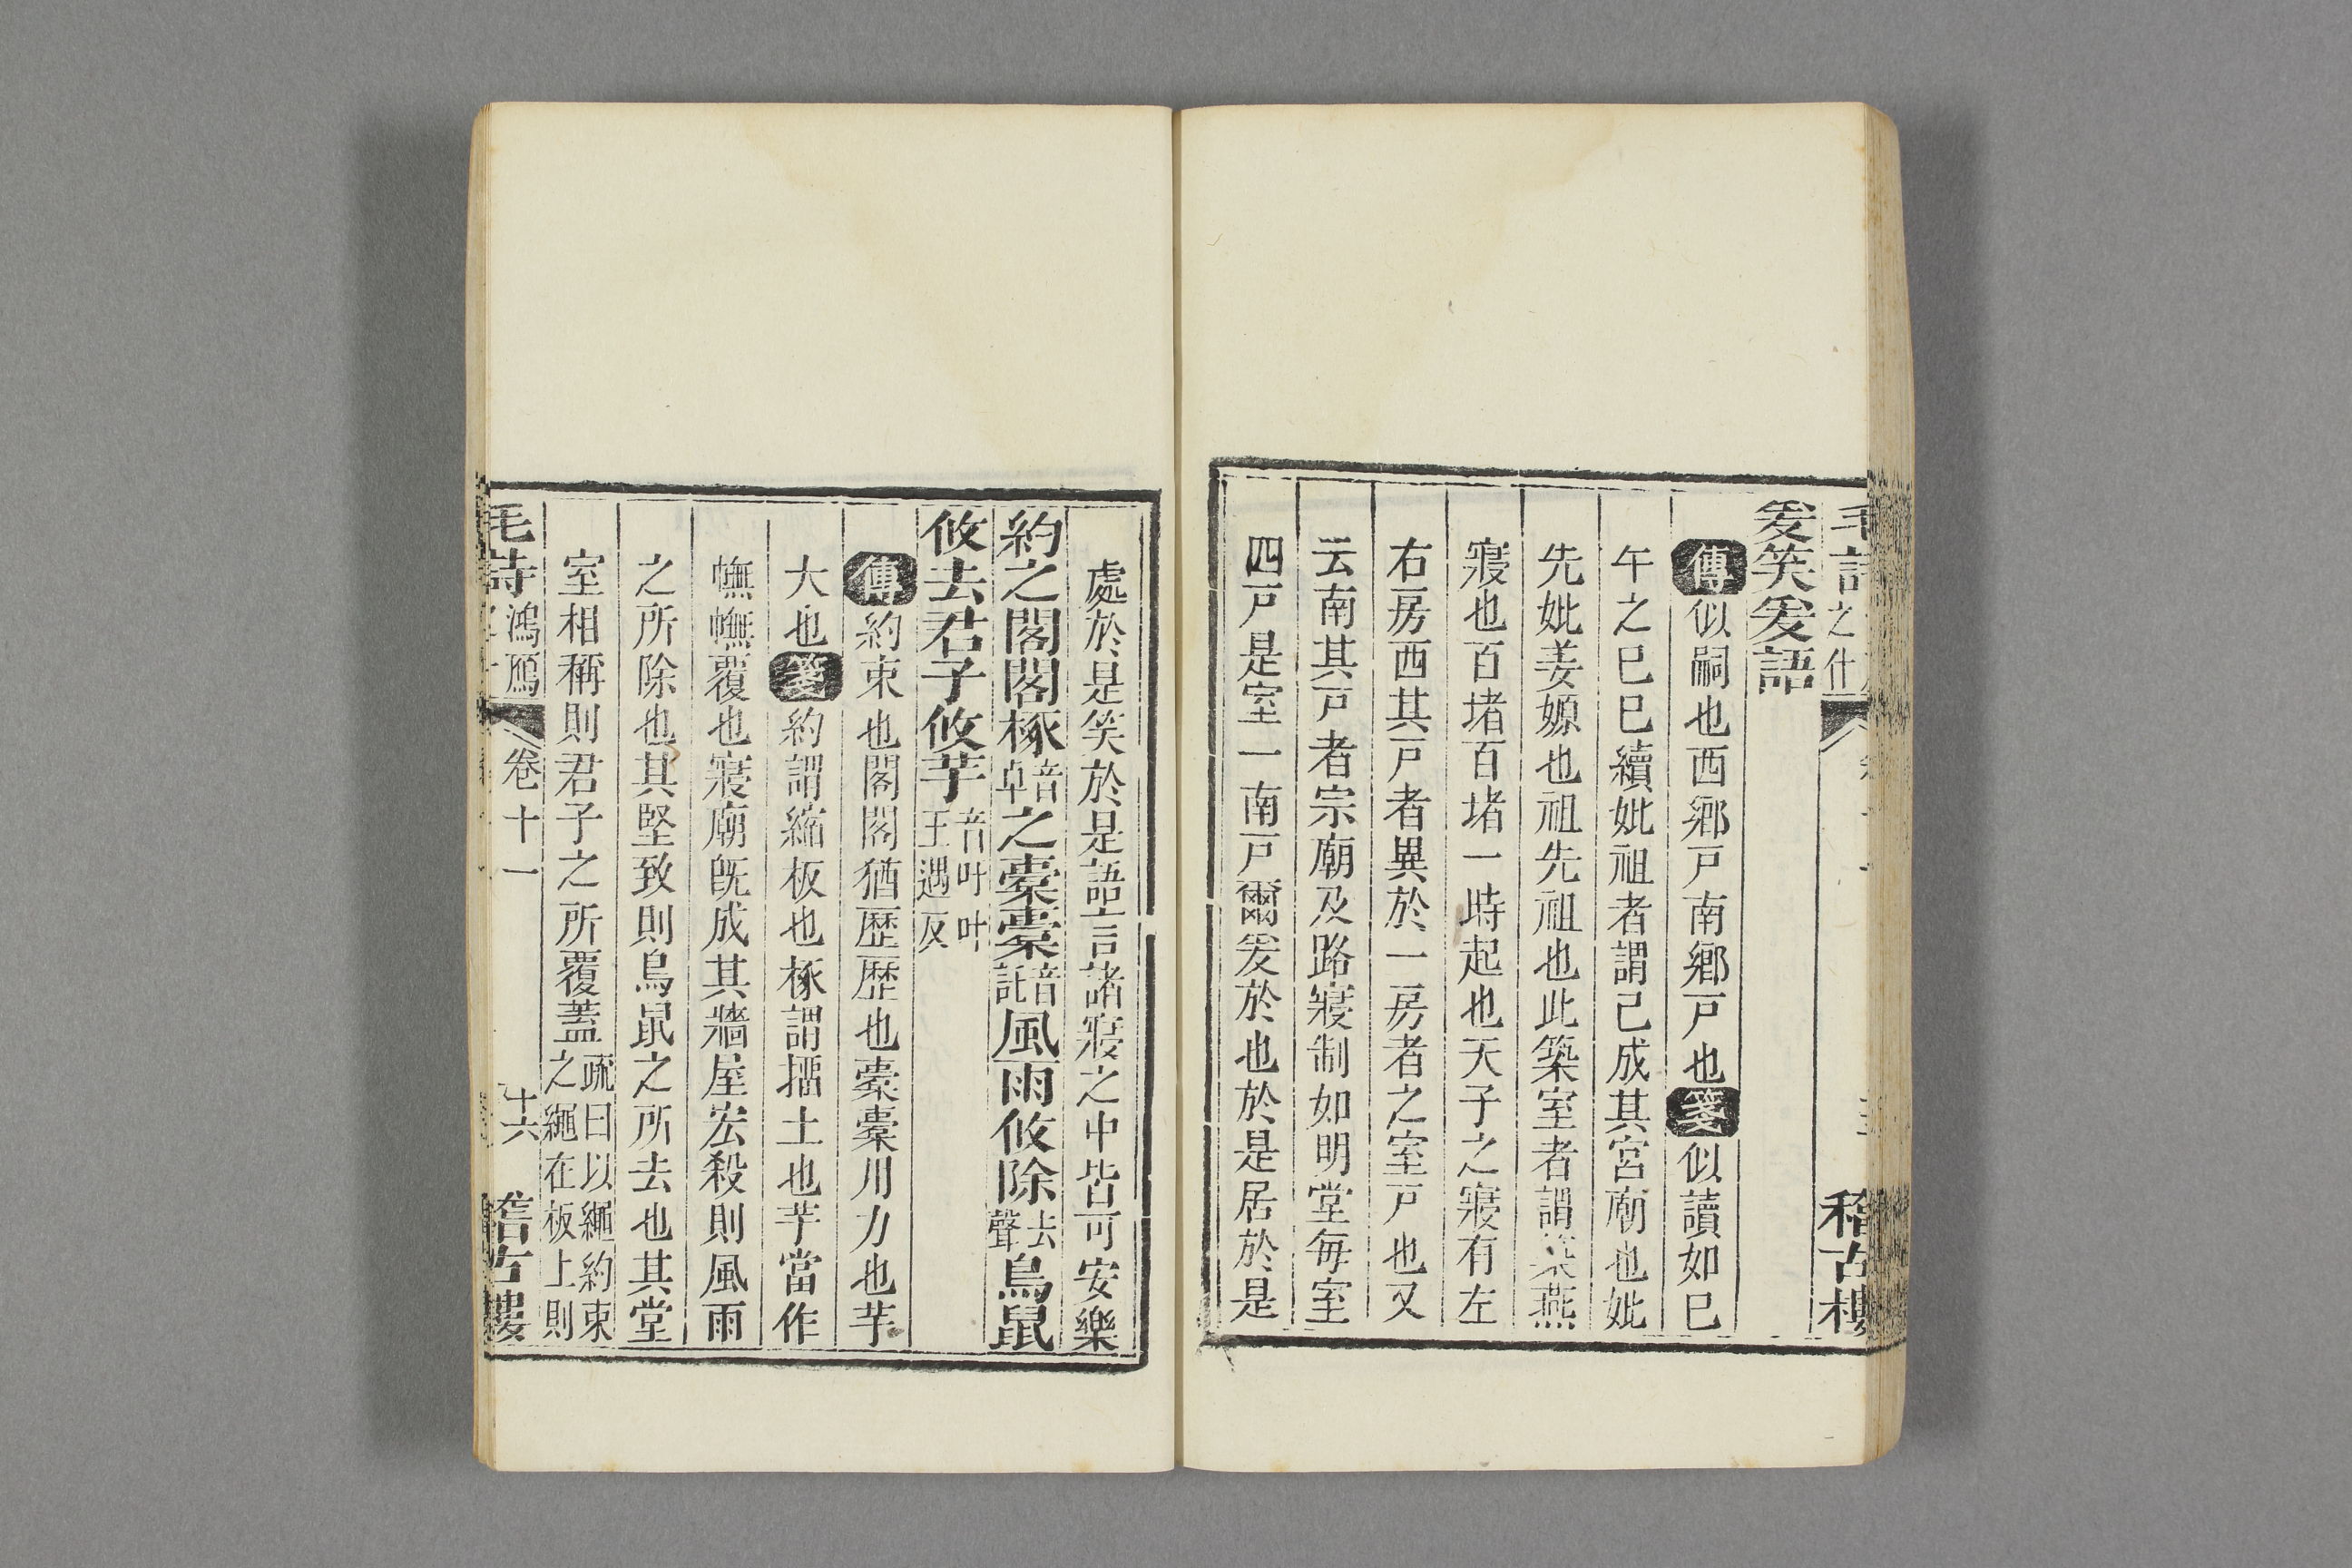 毛詩 之什 稽古樓
爰笑爰語
傳似嗣也西鄉戸南鄉戸也箋似讀如巳
午之巳巳續妣祖者謂己成其宮廟也妣
先妣姜嫄也祖先祖也此築室者謂築燕
寢也百堵百堵一時起也天子之寢有左
右房西其戸者異於一房者之室戸也又
云南其戸者宗廟及路寢制如明堂每室
四戸是室一南戸爾爰於也於是居於是
處於是笑於是語言諸寢之中皆可安樂
約之閣閣椓音卓之橐橐音託風雨攸除去聲鳥鼠
攸去君子攸芋音吁叶王遇反
傳約束也閣閣猶歷歷也橐橐用力也芋
大也箋約謂縮板也椓謂擂土也芋當作
幠幠覆也寢廟旣成其牆屋宏殺則風雨
之所除也其堅致則鳥鼠之所去也其堂
室相稱則君子之所覆蓋疏曰以繩約束之繩在板上則
毛詩 鴻鴈 卷十一 十六 稽古樓